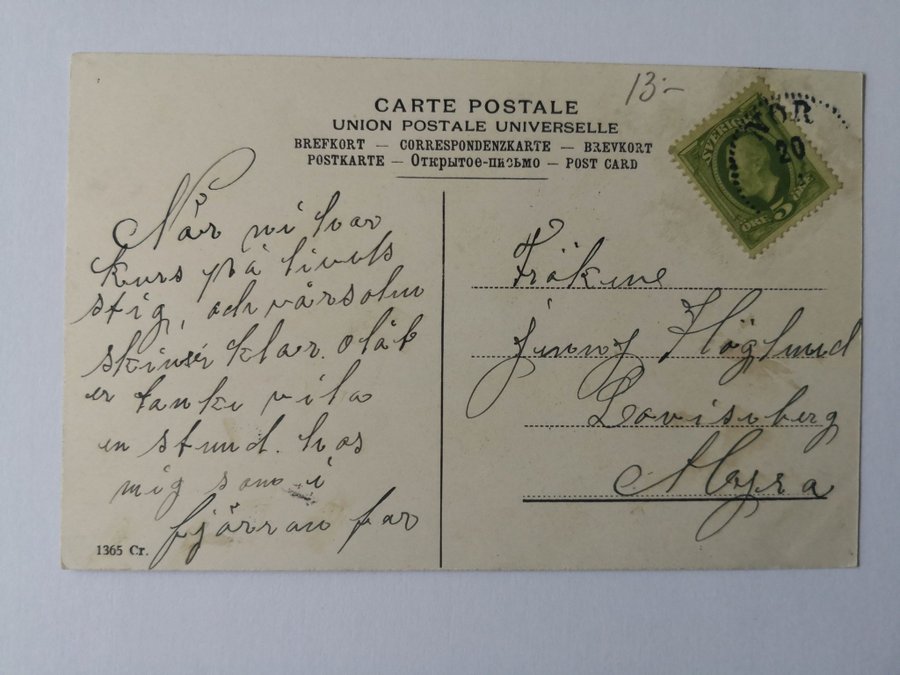 13.-
CARTE POSTALE
UNION POSTALE UNIVERSELLE
BREFKORT — CORRESPONDENZKARTE — BREVKORT
POSTKARTE — Открытое-письмо — POST CARD
SVERIGE
5
ÖRE
NOR
20
När ni har
kurs på livets
stig, och vårsoln
klar. o låt
er tanke vila
en stund. hos
mig som i
fjärran far
Fröken
Jenny Höglund
Loviseberg
Myra
1365 Cr.